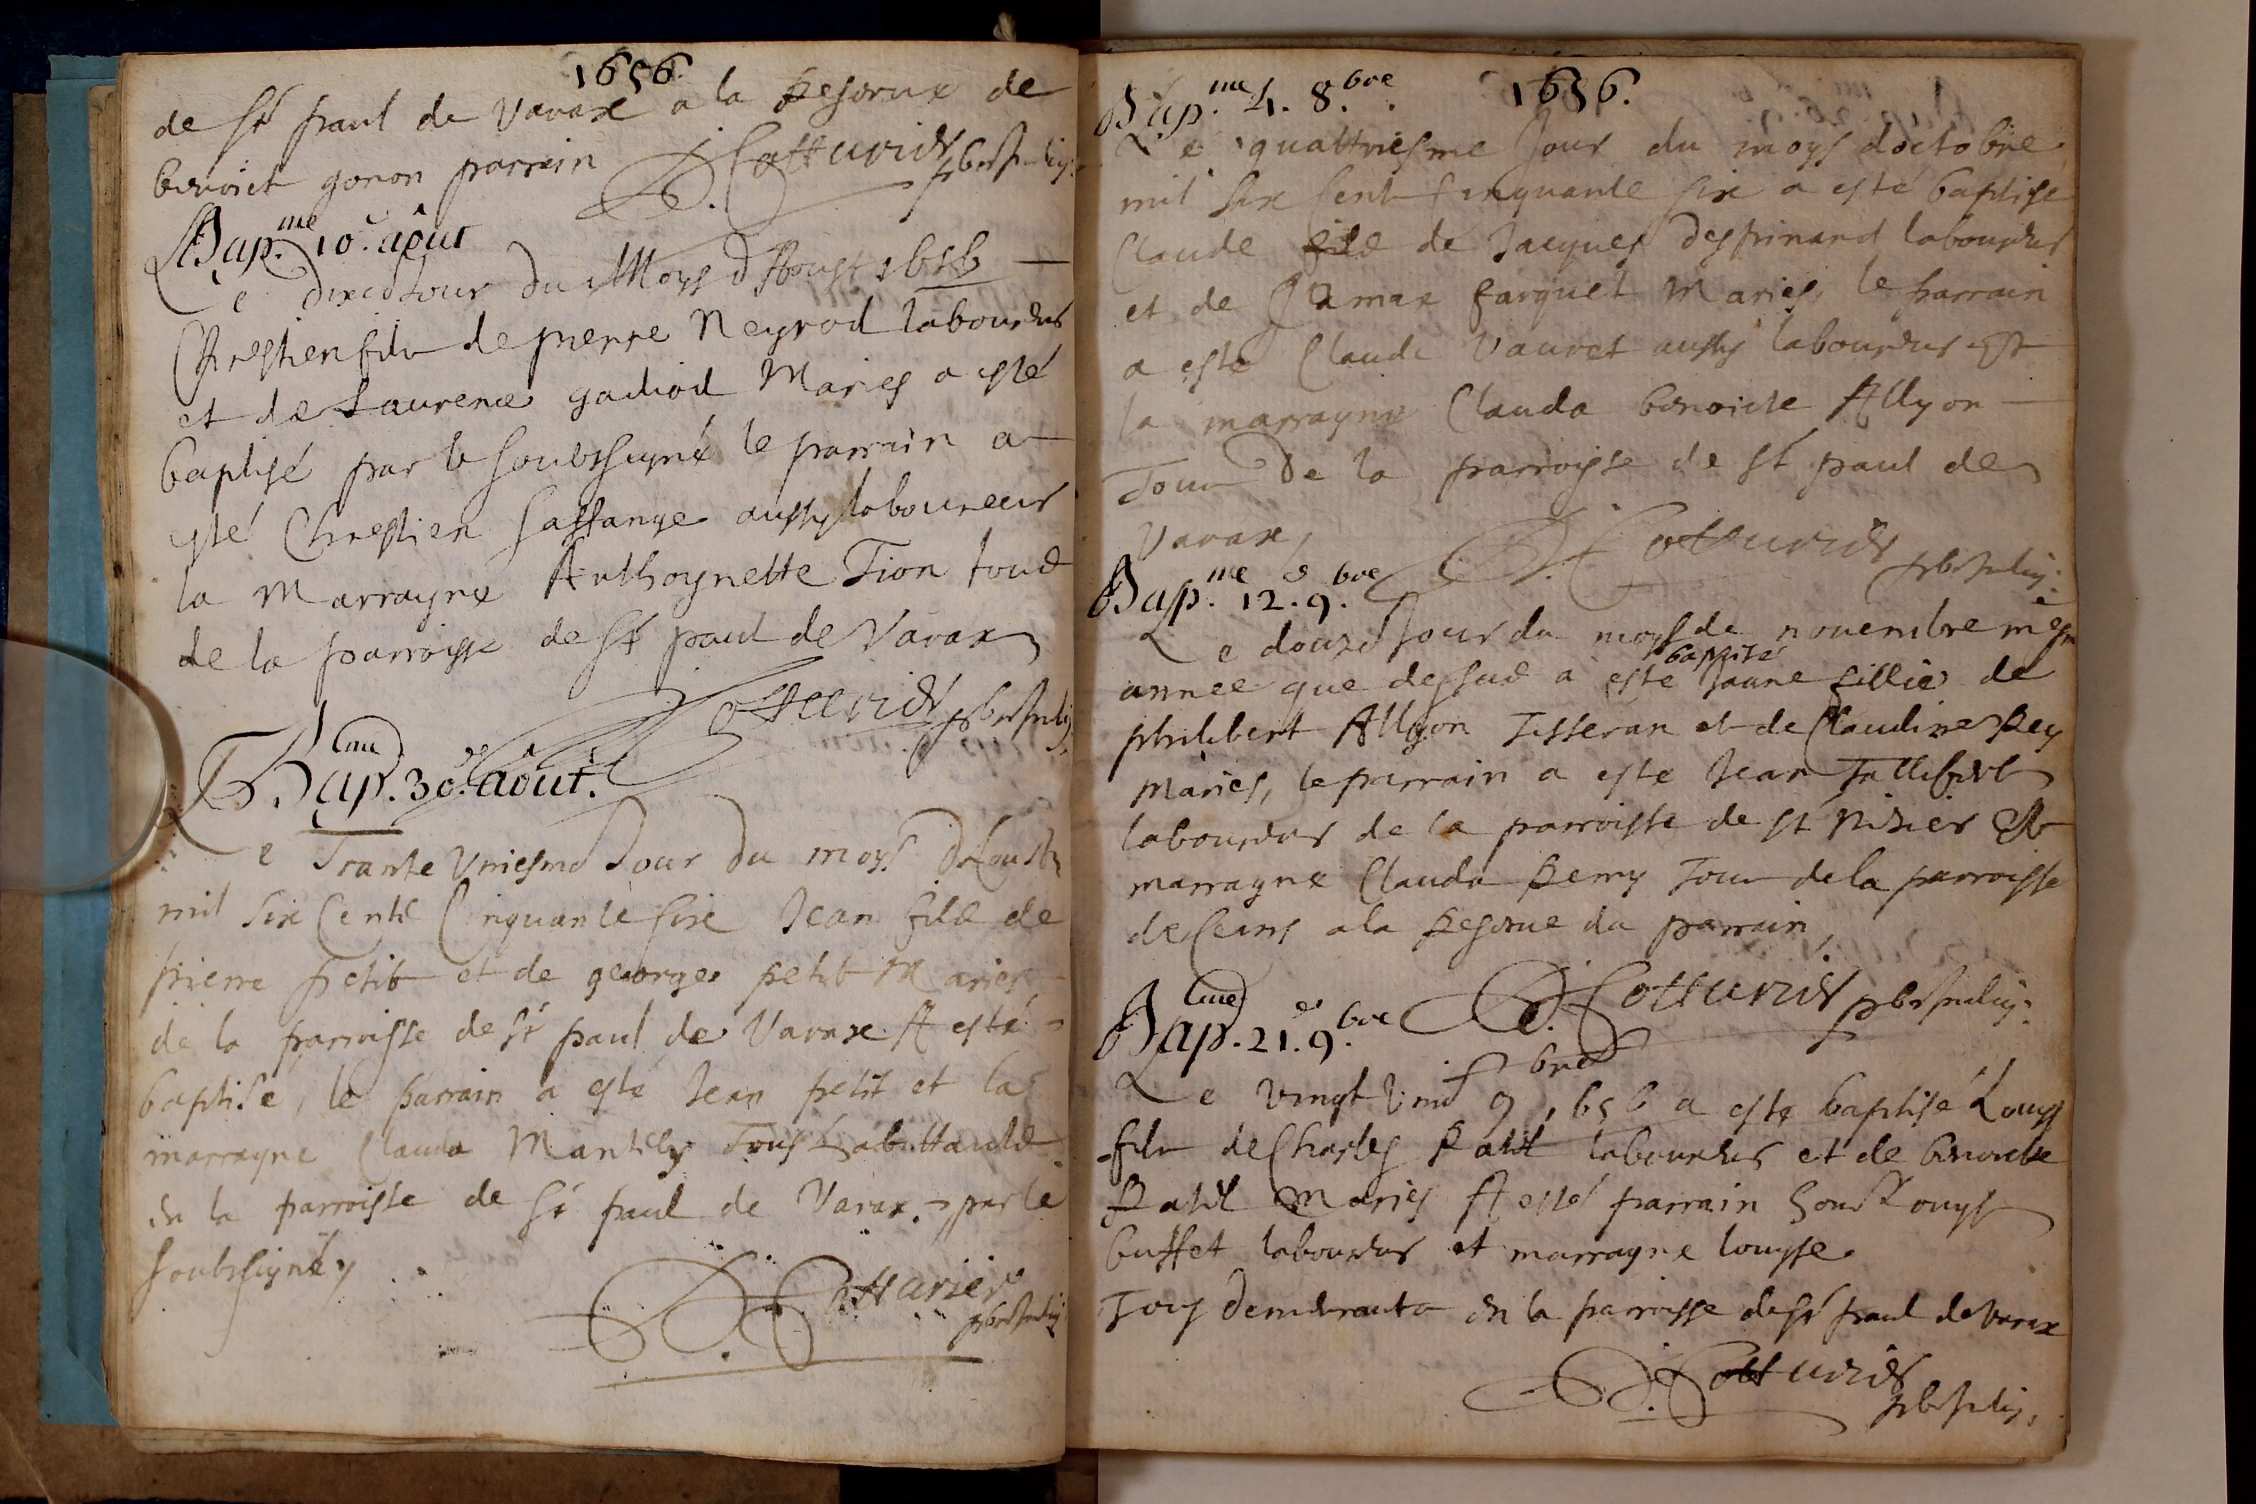 1656.
de st paul de Varax a la Reserue de
benoict gonon parrein Cotturier
Bap.me 10.e août
Le dixe Jour du Moys d'Aoust 1656
Chrestien filz de pierre Neyrod laboureur
et de Laurence gadiod Maries a esté
baptisé par le soubssigné le parrain a
esté Chrestien aussy laboureur
la Marrayne Anthoynette Tion tous
de la parroisse de st paul de Varax
Cotturier
Bap.me 30.e août.
Le Trante Uniesme Jour du moys D'Aoust
mil six Centz Cinquante six Jean filz de
pierre petit et de george petit Maries
de la parroisse de st paul de Varax A esté
baptisé, le parrain a esté Jean petit et la
marrayne Clauda Mantely Tous habittantz
en la parroisse de st paul de Varax par le
soubssigné
Cotturier
1656.
Bap.me 4. 8.bre
Le quattriesme Jour du moys d'octobre
mil six Cent Cinquante six a esté baptisé
Claude filz de Jacques despinard laboureur
et de farguet Maries, le parrain
a esté Claude Vauret aussy laboureur Et
la marrayne Clauda benoiste Allyon
Tous De la parroisse de st paul de
Varax,
Cotturier
Bap.me 12.e 9.bre
Le douze Jour du moys de nouembre mesme
année que dessus a esté baptisé Jane fillie de
philibert Allyon Tisseran et de Claudine Rey
Maries, le parrain a esté Jean
laboureur de la parroisse de st Nisier Et
marrayne Clauda Remy Tous de la parroisse
de seans a la Reserue du parrain,
Cotturier
Bap.me 21.e 9.bre
Le Vingt Un 9bre 1656 a esté baptisé Louys
filz de Charles Ratit laboureur et de benoiste
Ratit Maries A esté parrain Louys
buffet laboureur et marrayne louyse
Tous demeurants en la parroisse de st paul de Varax
Cotturier